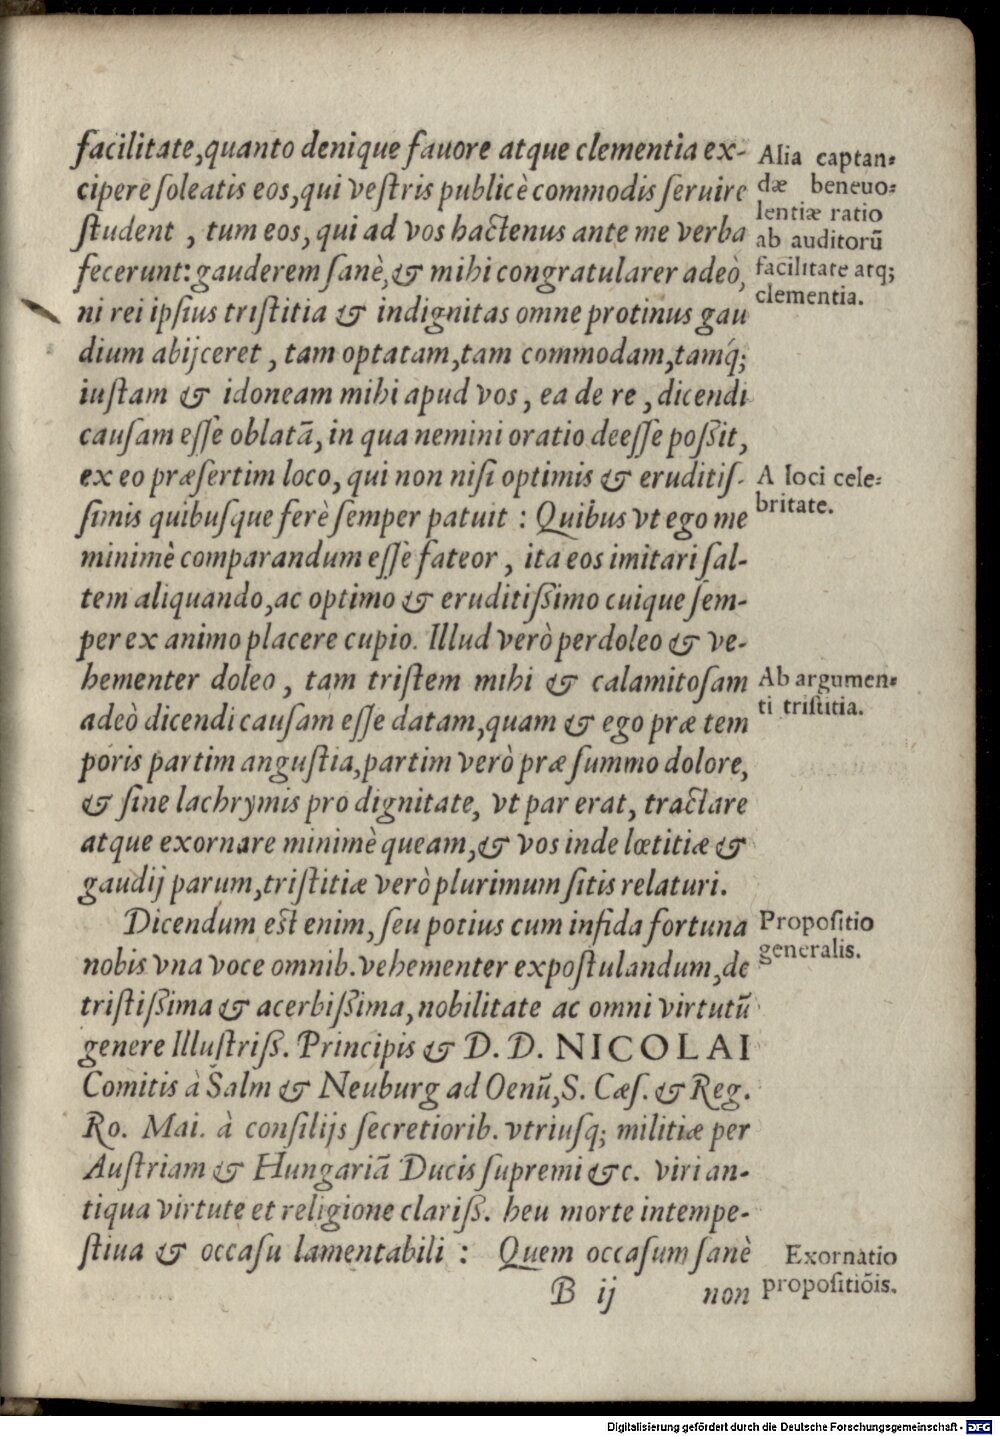 facilitate, quanto denique fauore atque clementia ex-
cipere ſoleatis eos, qui veſtris publicè commodis ſeruire
ſtudent, tum eos, qui ad vos hactenus ante me verba
fecerunt: gauderem ſanè, & mihi congratularer adeò,
ni rei ipſius triſtitia & indignitas omne protinus gau
dium abijceret, tam optatam, tam commodam, tamq́;
iuſtam & idoneam mihi apud vos, ea de re, dicendi
cauſam eſſe oblatā, in qua nemini oratio deeſſe poßit,
ex eo præſertim loco, qui non niſi optimis & eruditiſ-
ſimis quibuſque ferè ſemper patuit : Quibus vt ego me
minimè comparandum eſſe fateor, ita eos imitari ſal-
tem aliquando, ac optimo & eruditißimo cuique ſem-
per ex animo placere cupio. Illud verò perdoleo & ve-
hementer doleo, tam triſtem mihi & calamitoſam
adeò dicendi cauſam eſſe datam, quam & ego præ tem
poris partim anguſtia, partim verò præ ſummo dolore,
& ſine lachrymis pro dignitate, vt par erat, tractare
atque exornare minimè queam, & vos inde lœtitiæ &
gaudij parum, triſtitiæ verò plurimum ſitis relaturi.
Dicendum eſt enim, ſeu potius cum infida fortuna
nobis vna voce omnib. vehementer expoſtulandum, de
triſtißima & acerbißima, nobilitate ac omni virtutū
genere Illuſtriß. Principis & D. D. NICOLAI
Comitis à Salm & Neuburg ad Oenū, S. Cæſ. & Reg.
Ro. Mai. à conſilijs ſecretiorib. vtriuſq; militiæ per
Auſtriam & Hungariā Ducis ſupremi &c. viri an-
tiqua virtute et religione clariß. heu morte intempe-
ſtiua & occaſu lamentabili : Quem occaſum ſanè
B ij non
Alia captan=
dæ beneuo=
lentiæ ratio
ab auditorū
facilitate atq;
clementia.
A loci cele=
britate.
Ab argumen=
ti triſtitia.
Propoſitio
generalis.
Exornatio
propoſitiōis.
Digitalisierung gefördert durch die Deutsche Forschungsgemeinschaft - DFG